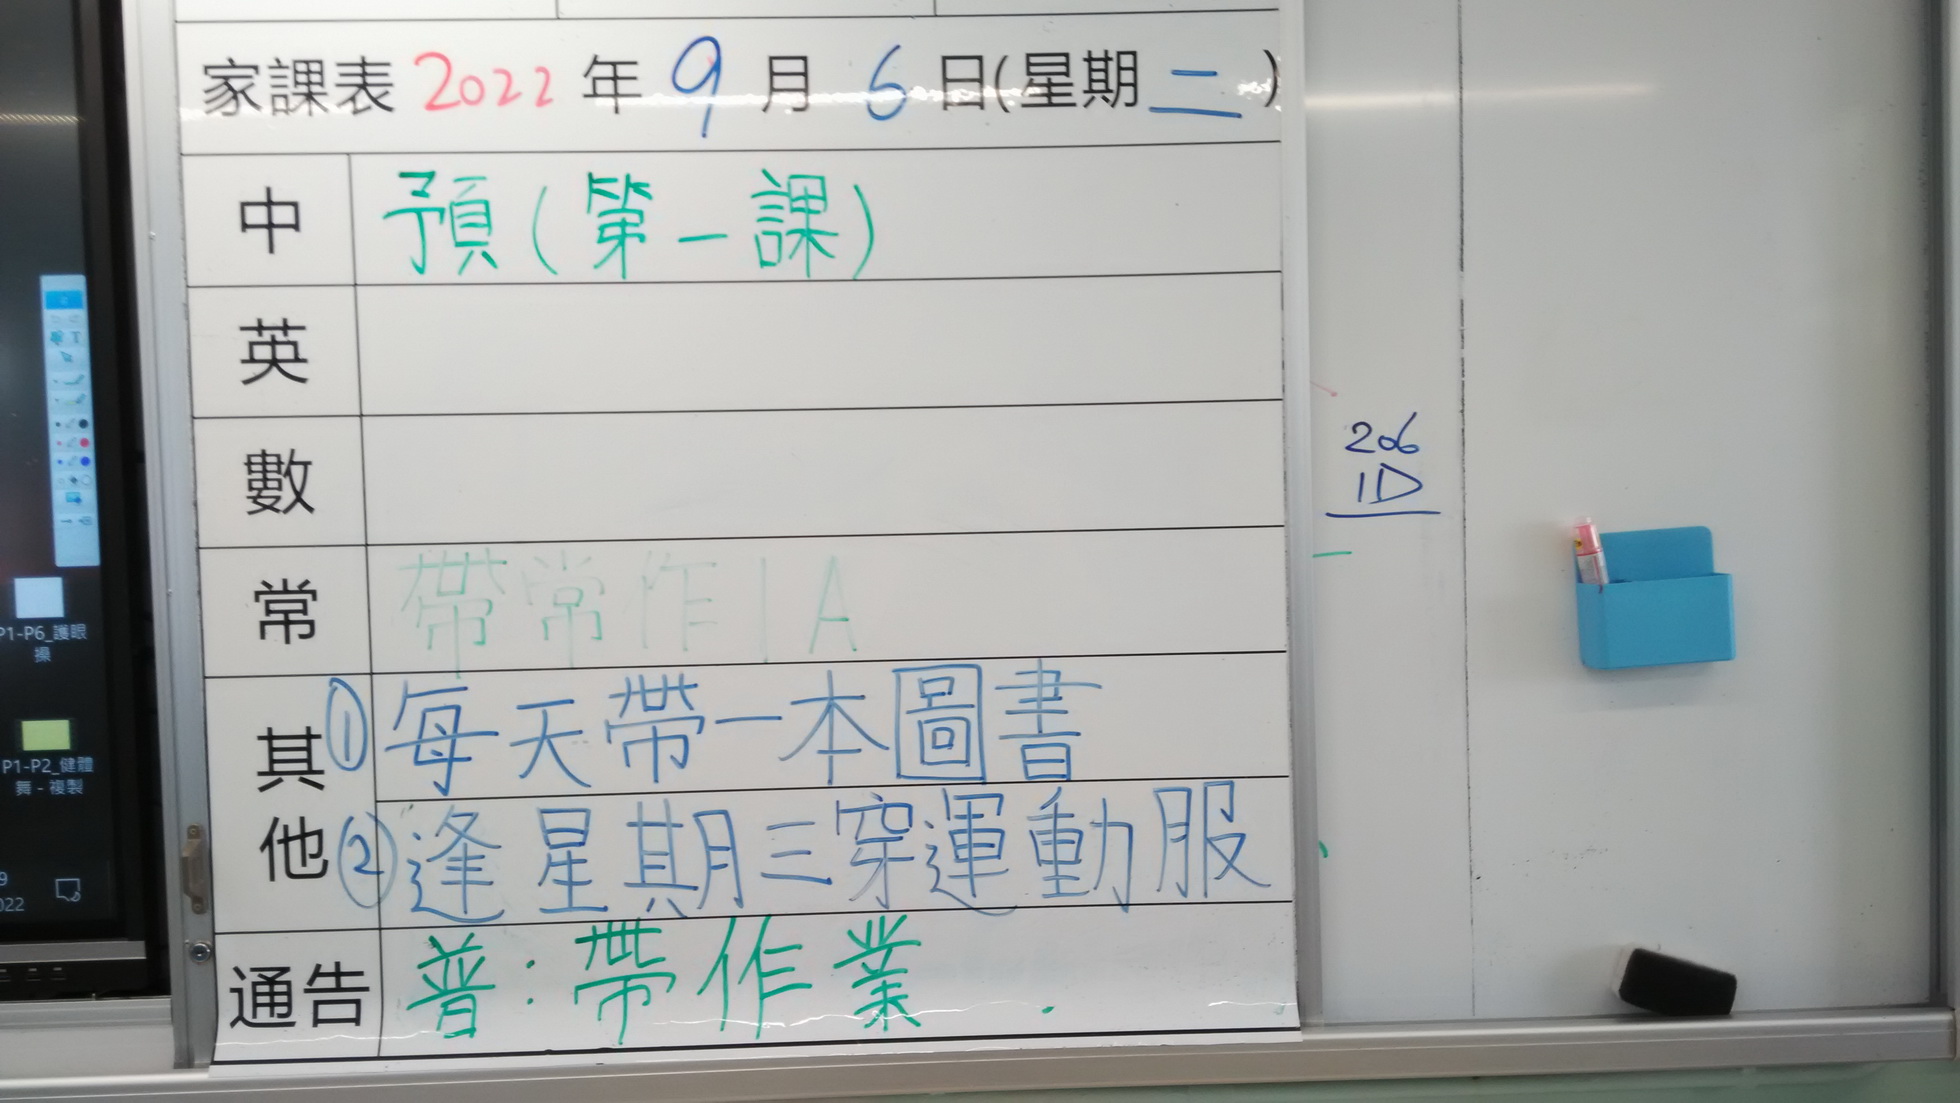 家課表 2022 年 9 月 6 日(星期二)
中 預(第一課)
英
數
常 帶常作1A
其他 ①每天帶一本圖書
②逢星期三穿運動服
通告 普:帶作業
206
1D
P1-P6_護眼操
P1-P2_健體舞 - 複製
9
022